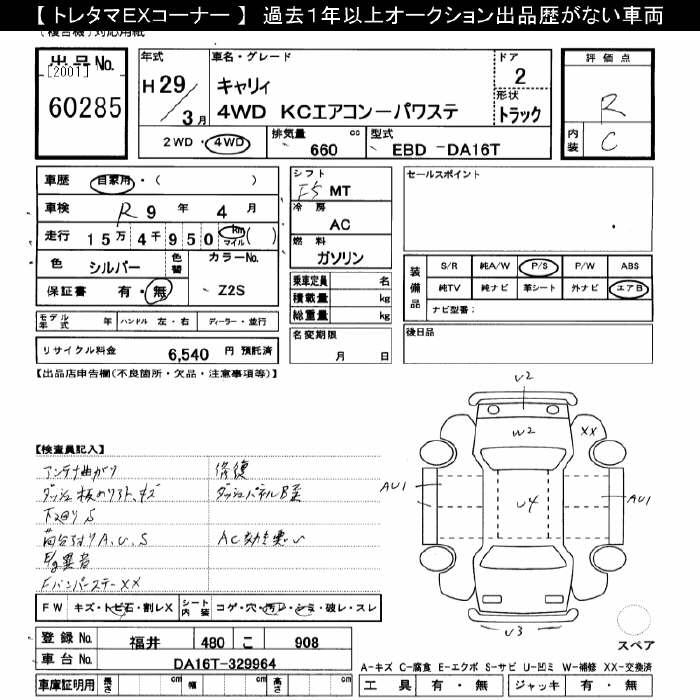 【 トレタマEXコーナー 】 過去1年以上オークション出品歴がない車両
(複合機)対応用紙
出品No.
[2001]
60285
年式
H29
3月
車名・グレード
キャリィ
4WD KCエアコン－パワステ
ドア
2
形状
トラック
評価点
R
内装
C
2WD・4WD
排気量
660
cc
型式
EBD -DA16T
車歴 自家用・( )
車検 R 9 年 4 月
走行 15万 4千 950 km マイル ( )
色 シルバー 色替 カラーNo.
保証書 有・無 Z2S
モデル年式 年 ハンドル 左・右 ディーラー・並行
リサイクル料金 6,540 円 預託済
シフト
F5 MT
冷房
AC
燃料
ガソリン
乗車定員 名
積載量 kg
総重量 kg
名変期限
月 日
セールスポイント
装備品
S/R 純A/W P/S P/W ABS
純TV 純ナビ 革シート 外ナビ エアB
ナビ型番:
後日品
【出品店申告欄(不良箇所・欠品・注意事項等)】
【検査員記入】
アンテナ曲がり
ダッシュ板
キズ
下回り S
荷台 A、U、S
Eg異音
Fバンパーステー XX
修復
ダッシュパネル
AC効き悪い
FW キズ・トビ石・割レX シート内装 コゲ・穴・汚レ・シミ・破レ・スレ
登録No. 福井 480 こ 908
車台No. DA16T-329964
車庫証明用 長さ cm 幅 cm 高さ cm
U2
W2
XX
AU1
U4
AU1
U3
スペア
A-キズ C-腐食 E-エクボ S-サビ U-凹ミ W-補修 XX-交換済
工具 有・無 ジャッキ 有・無